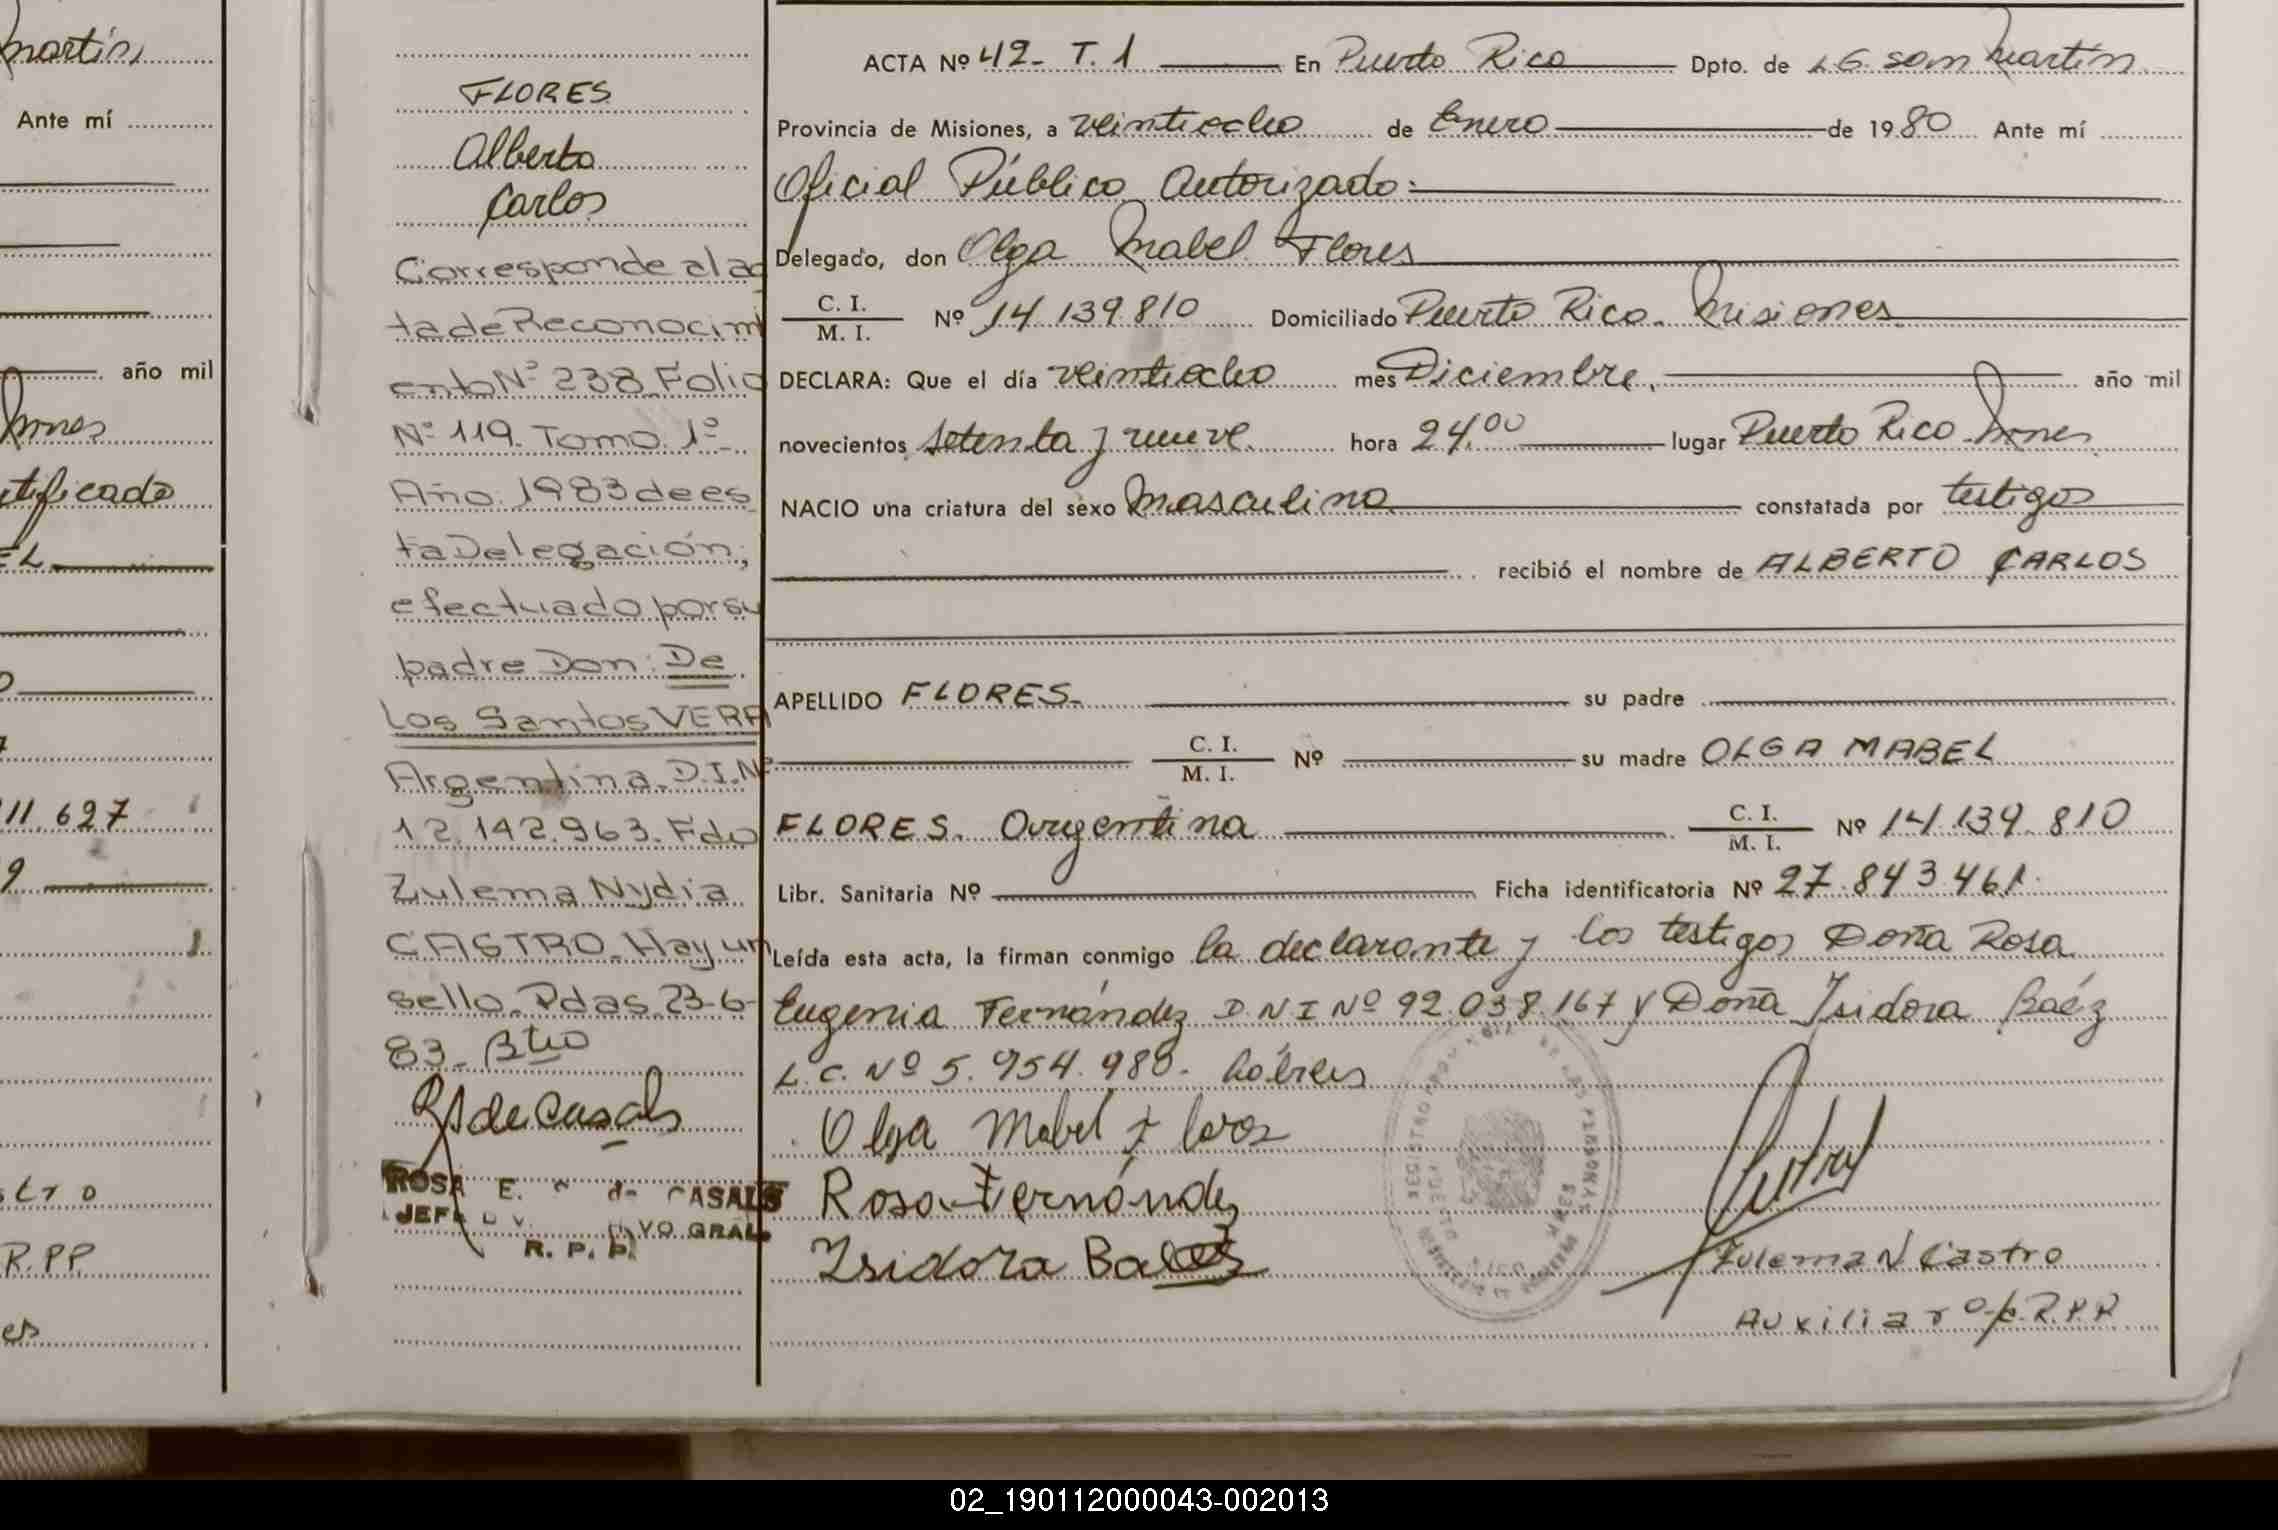 martín
Ante mí
año mil
Mnes
tificado
EL
11.627
9
stro
R.PP.
es
FLORES
Alberto
Carlos
Corresponde al ac
ta de Reconocimi
ento Nº 238. Folio
Nº 119. Tomo. 1º-
Año: 1983 de es
ta Delegación;
efectuado por su
padre Don: De
Los Santos VERA
Argentina. D.I.Nº
12.142.963. Fdo
Zulema Nydia
CASTRO. Hay un
sello. Pdas. 23-6-
83.
ROSA E. de CASALS
JEF VO GRAL.
R. P. P.
ACTA Nº 42- T. 1 En Puerto Rico Dpto. de LG. San Martín
Provincia de Misiones, a veintiocho de Enero de 1980 Ante mí
Oficial Público Autorizado:
Delegado, don Olga Mabel Flores
C. I.
M. I. Nº 14.139.810 Domiciliado Puerto Rico. Misiones
DECLARA: Que el día veintiocho mes Diciembre. año mil
novecientos setenta y nueve hora 24,00 lugar Puerto Rico. Mnes
NACIO una criatura del sexo Masculino constatada por testigos
recibió el nombre de ALBERTO CARLOS
APELLIDO FLORES.- su padre
C. I.
M. I. Nº su madre OLGA MABEL
FLORES. Argentina C. I.
M. I. Nº 14.139.810
Libr. Sanitaria Nº Ficha identificatoria Nº 27.843.461.
Leída esta acta, la firman conmigo la declarante y los testigos Doña Rosa
Eugenia Fernández D N I Nº 92.038.167 y Doña Isidora Baéz
L.C. Nº 5.954.980. hábiles
Olga Mabel Flores
Rosa Fernández
Isidora Baez
Zulema N Castro
Auxiliar R.P.P.
02_190112000043-002013